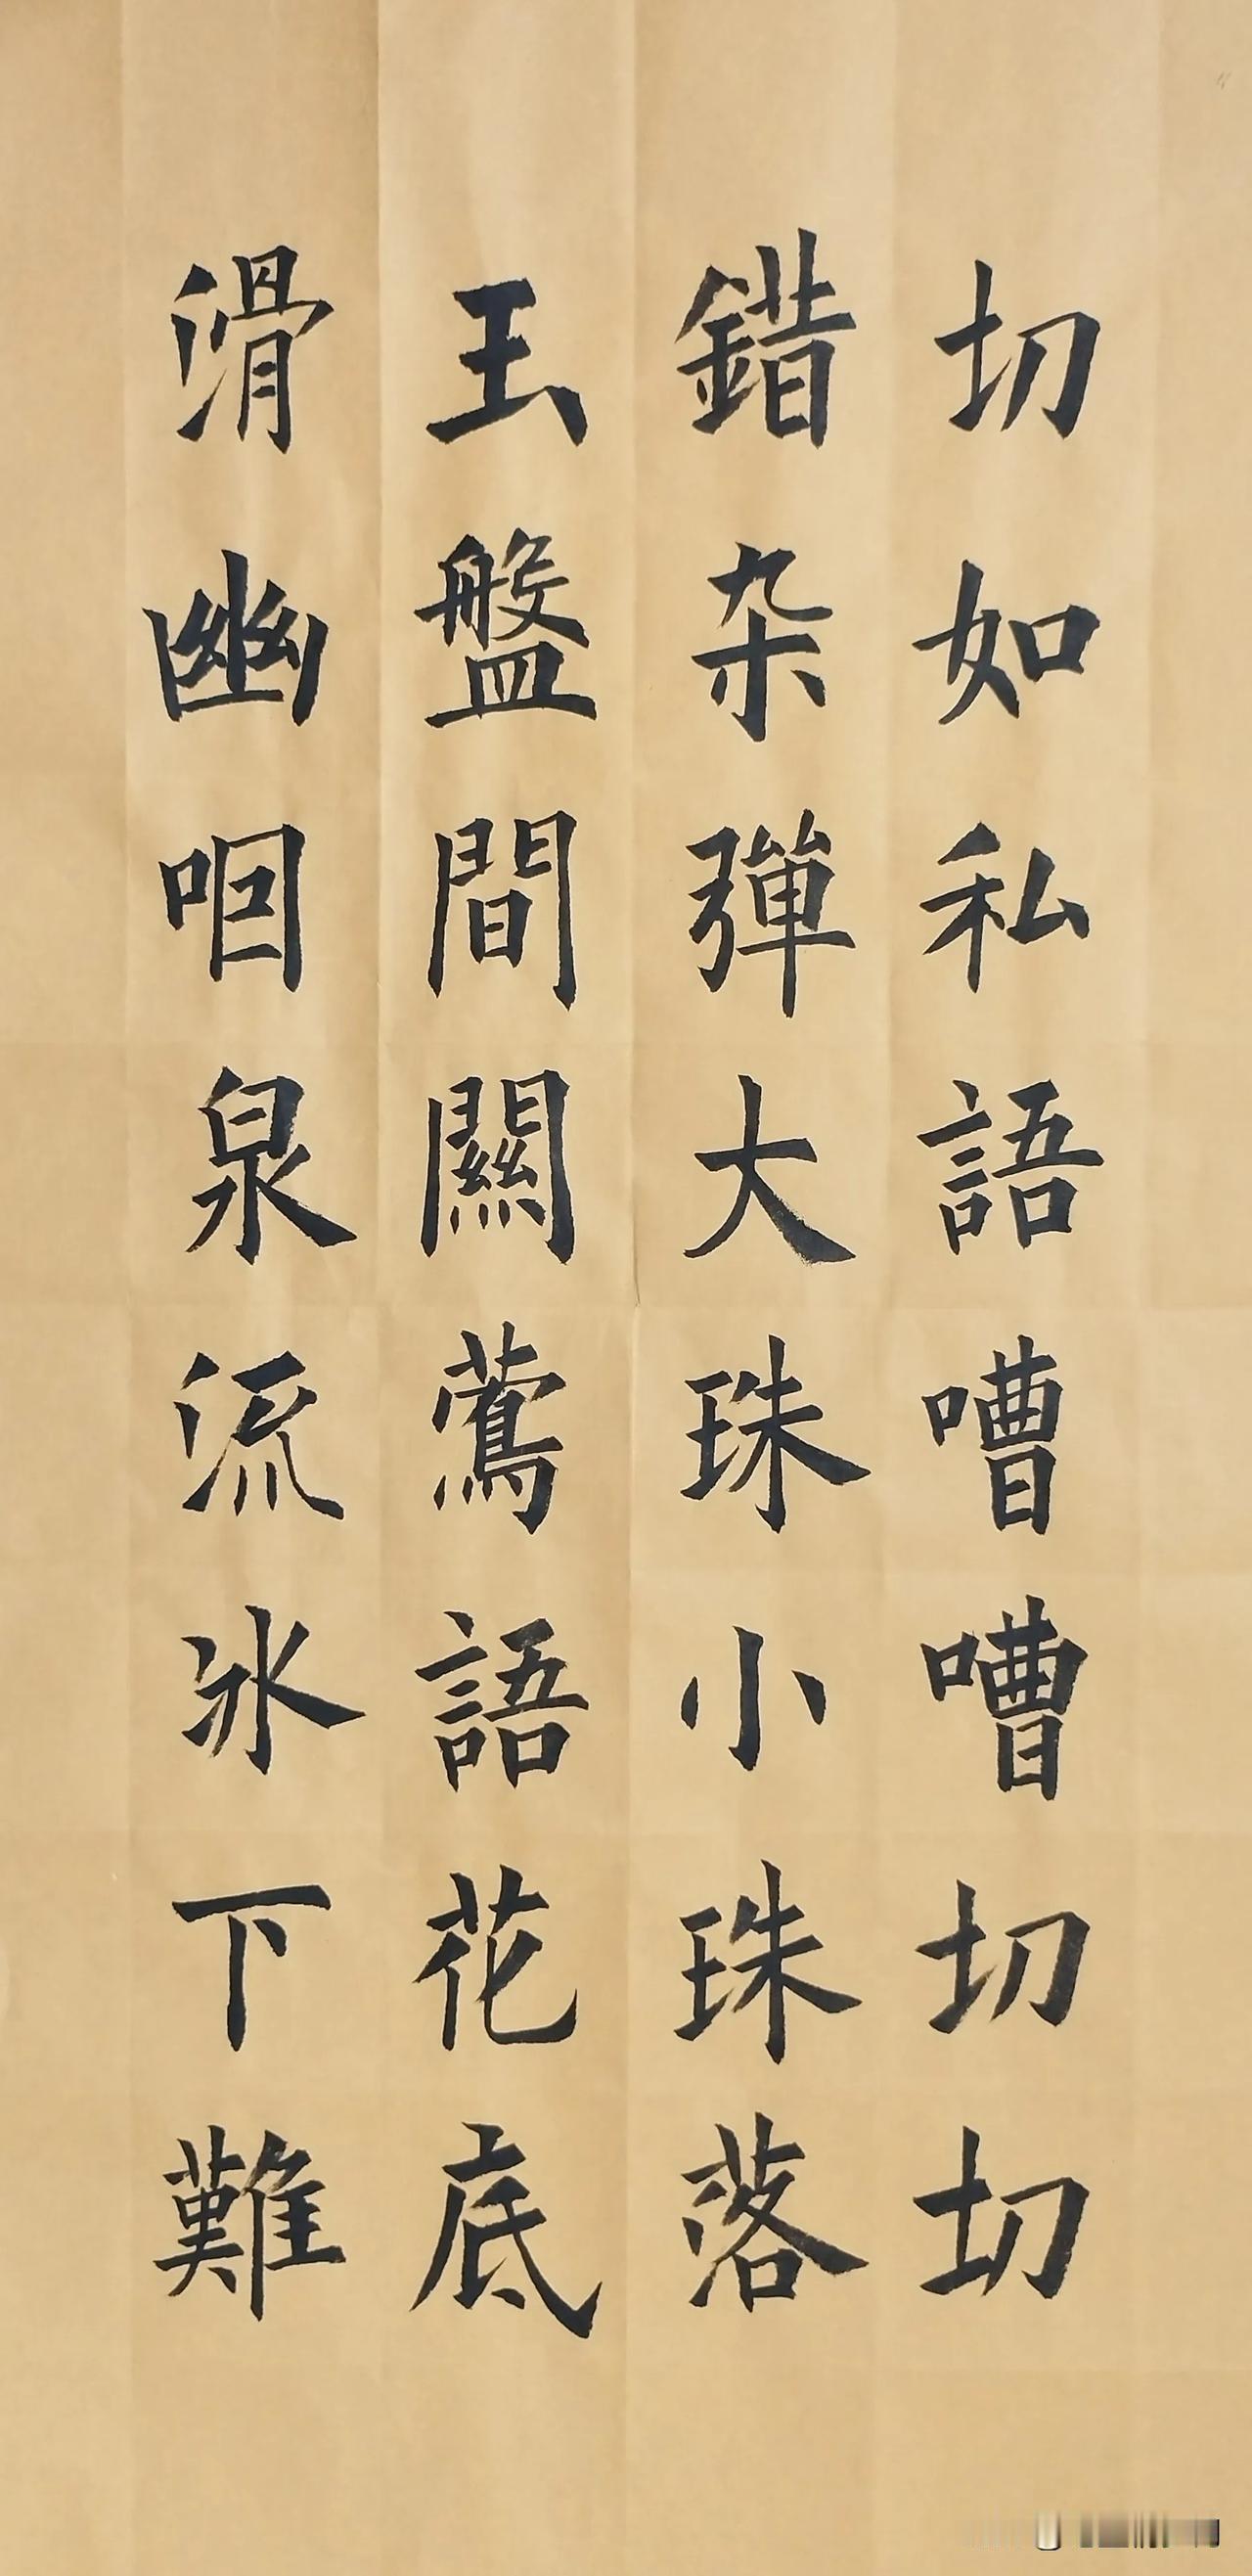 切如私語嘈嘈切切
錯杂彈大珠小珠落
玉盤間關鶯語花底
滑幽咽泉流冰下難